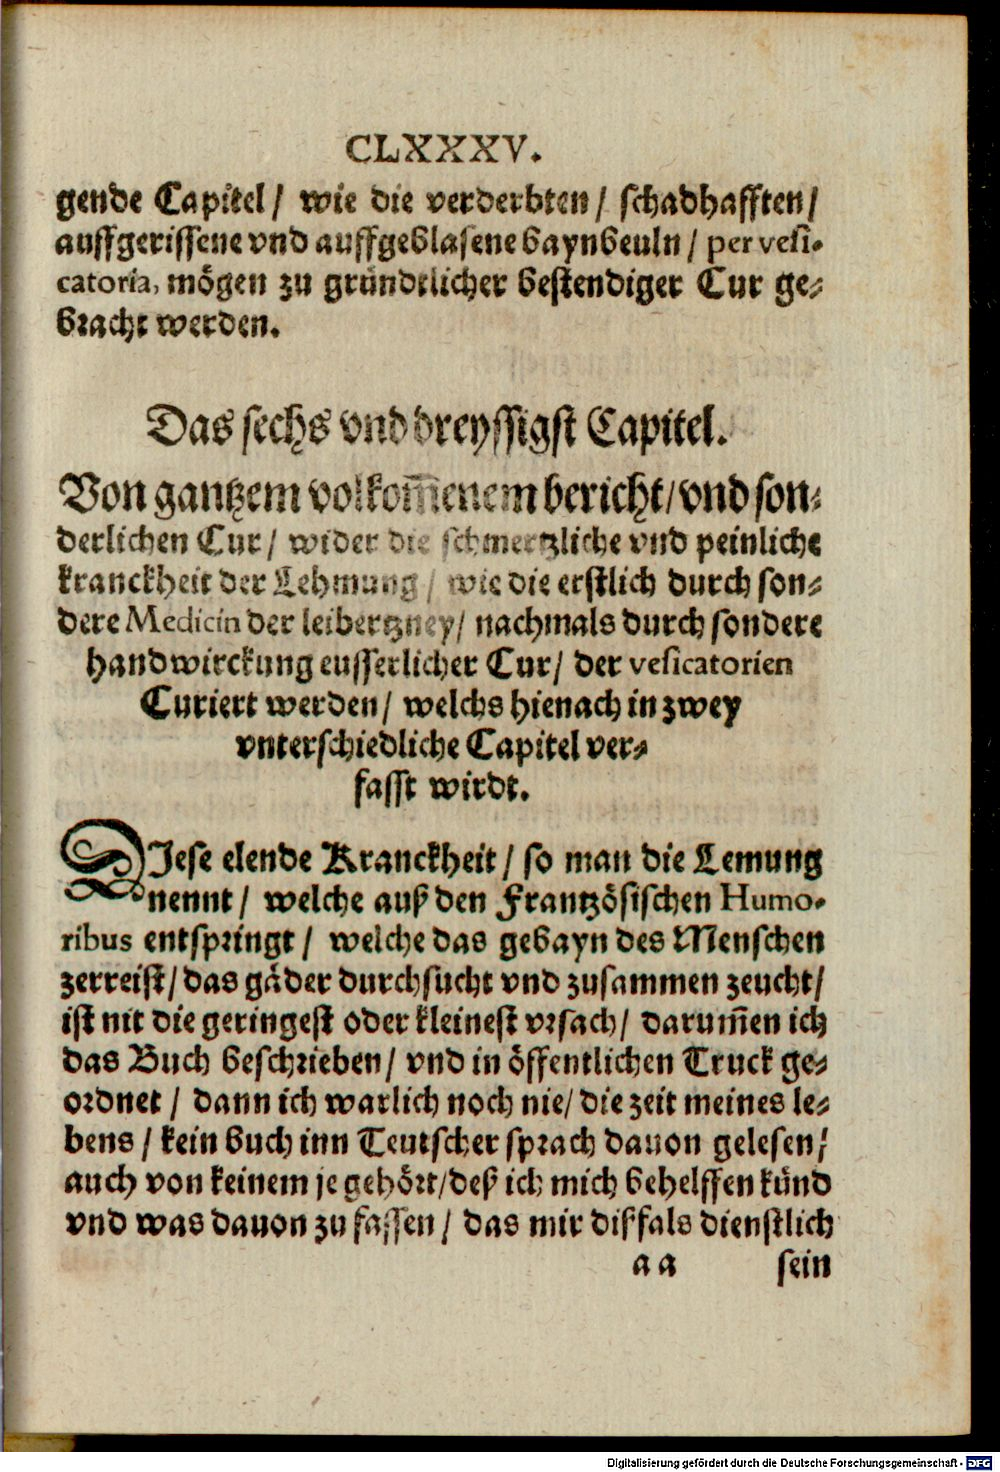 CLXXXV.
gende Capitel/ wie die verderbten/ schadhafften/
auffgerissene vnd auffgeblasene baynbeuln/ per vesi-
catoria, mögen zu gründtlicher bestendiger Cur ge-
bracht werden.
Das sechs vnd dreyssigst Capitel.
Von gantzem volkom̃enem bericht/ vnd son-
derlichen Cur/ wider die schmertzliche vnd peinliche
kranckheit der Lehmung/ wie die erstlich durch son-
dere Medicin der leibertzney/ nachmals durch sondere
handwirckung eusserlicher Cur/ der vesicatorien
Curiert werden/ welchs hienach in zwey
vnterschiedliche Capitel ver-
fasst wirdt.
DIese elende Kranckheit/ so man die Lemung
nennt/ welche auß den Frantzösischen Humo-
ribus entspringt/ welche das gebayn des Menschen
zerreist/ das gäder durchsucht vnd zusammen zeucht/
ist nit die geringest oder kleinest vrsach/ darum̃en ich
das Buch beschrieben/ vnd in öffentlichen Truck ge-
ordnet/ dann ich warlich noch nie/ die zeit meines le-
bens/ kein buch inn Teutscher sprach dauon gelesen/
auch von keinem je gehört/ deß ich mich behelffen künd
vnd was dauon zu fassen/ das mir dißfals dienstlich
aa sein
Digitalisierung gefördert durch die Deutsche Forschungsgemeinschaft - DFG